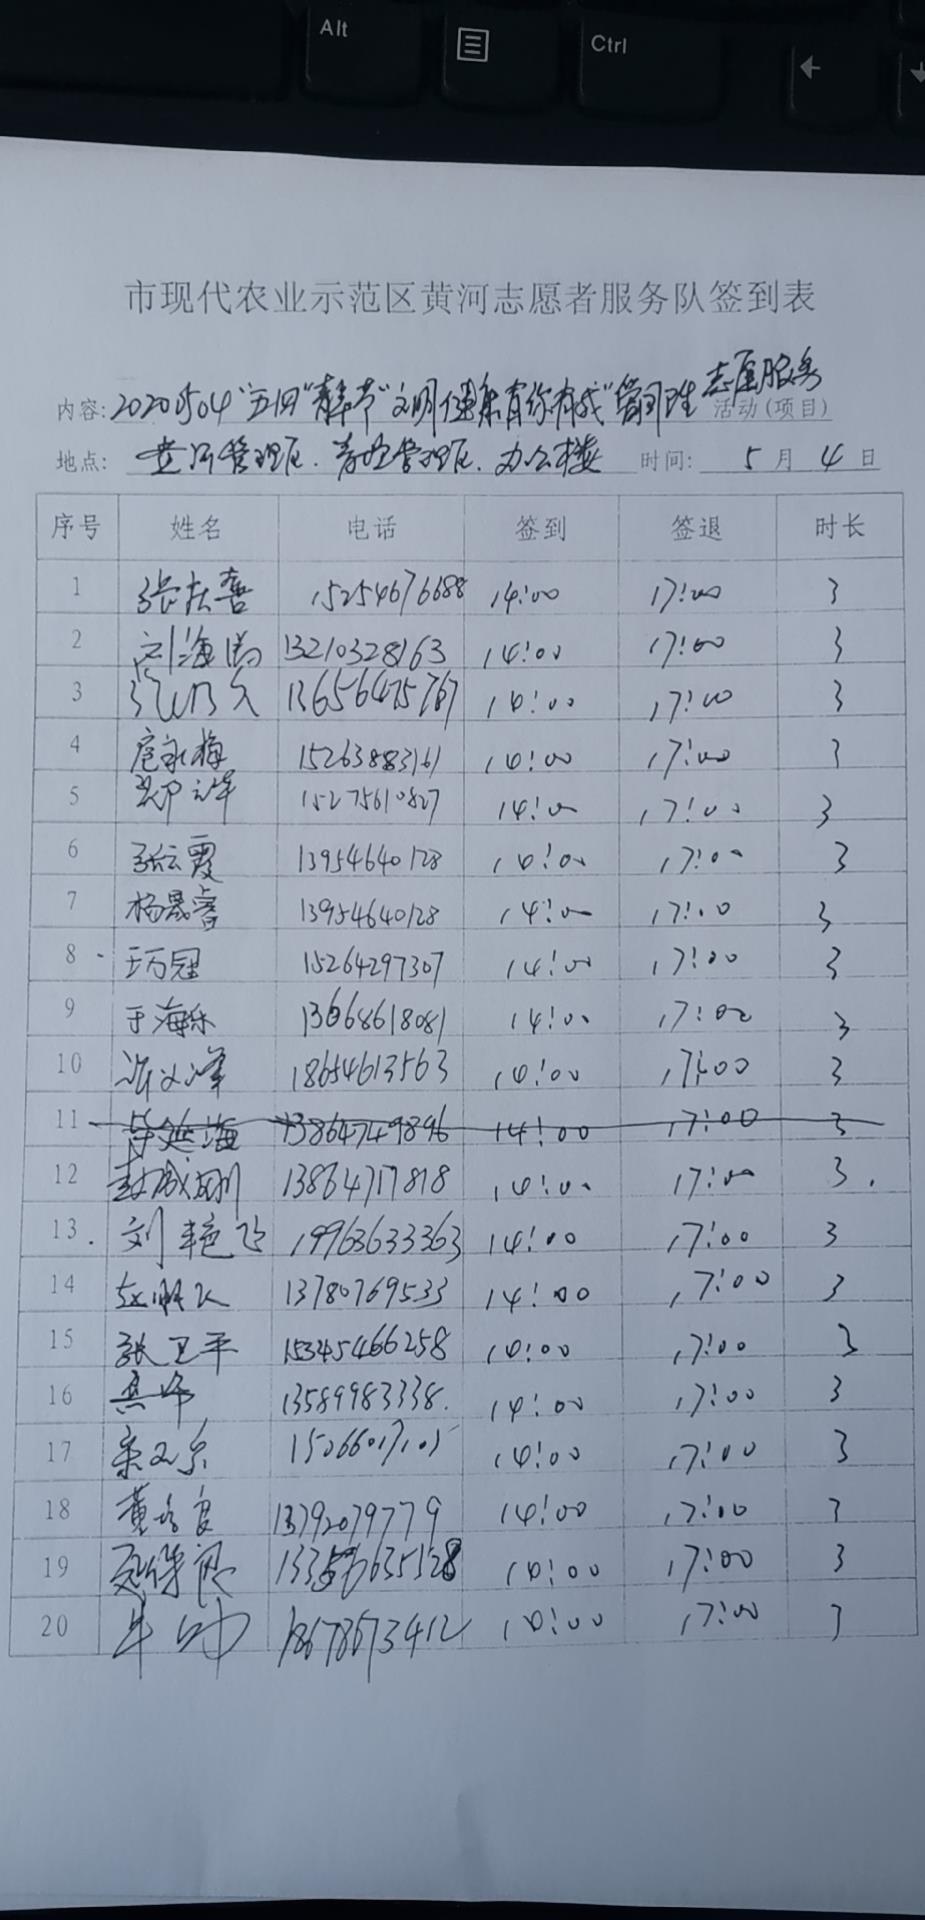 Alt
Ctrl
市现代农业示范区黄河志愿者服务队签到表
内容: 20200504"五四"青年节"文明健康有你有我" 志愿服务 活动(项目)
地点: 黄河管理区. 管理区. 办公楼 时间: 5 月 4 日
序号 姓名 电话 签到 签退 时长
1 张庆喜 15254676688 14:00 17:00 3
2 刘海 13210328163 14:00 17:00 3
3 13656475767 14:00 17:00 3
4 永梅 15263883161 14:00 17:00 3
5 郑 15275610827 14:00 17:00 3
6 张云霞 13954640128 14:00 17:00 3
7 杨晟睿 13954640128 14:00 17:00 3
8 王万冠 15264297307 14:00 17:00 3
9 于海乐 13668618081 14:00 17:00 3
10 峰 18654613563 14:00 17:00 3
11 延海 13864749896 14:00 17:00 3
12 13864717818 14:00 17:00 3
13 刘艳飞 19963633363 14:00 17:00 3
14 赵 13780769533 14:00 17:00 3
15 张卫平 15345466258 14:00 17:00 3
16 13589983338 14:00 17:00 3
17 14:00 17:00 3
18 黄 良 13792079779 14:00 17:00 3
19 14:00 17:00 3
20 牟帅 18678673412 14:00 17:00 3